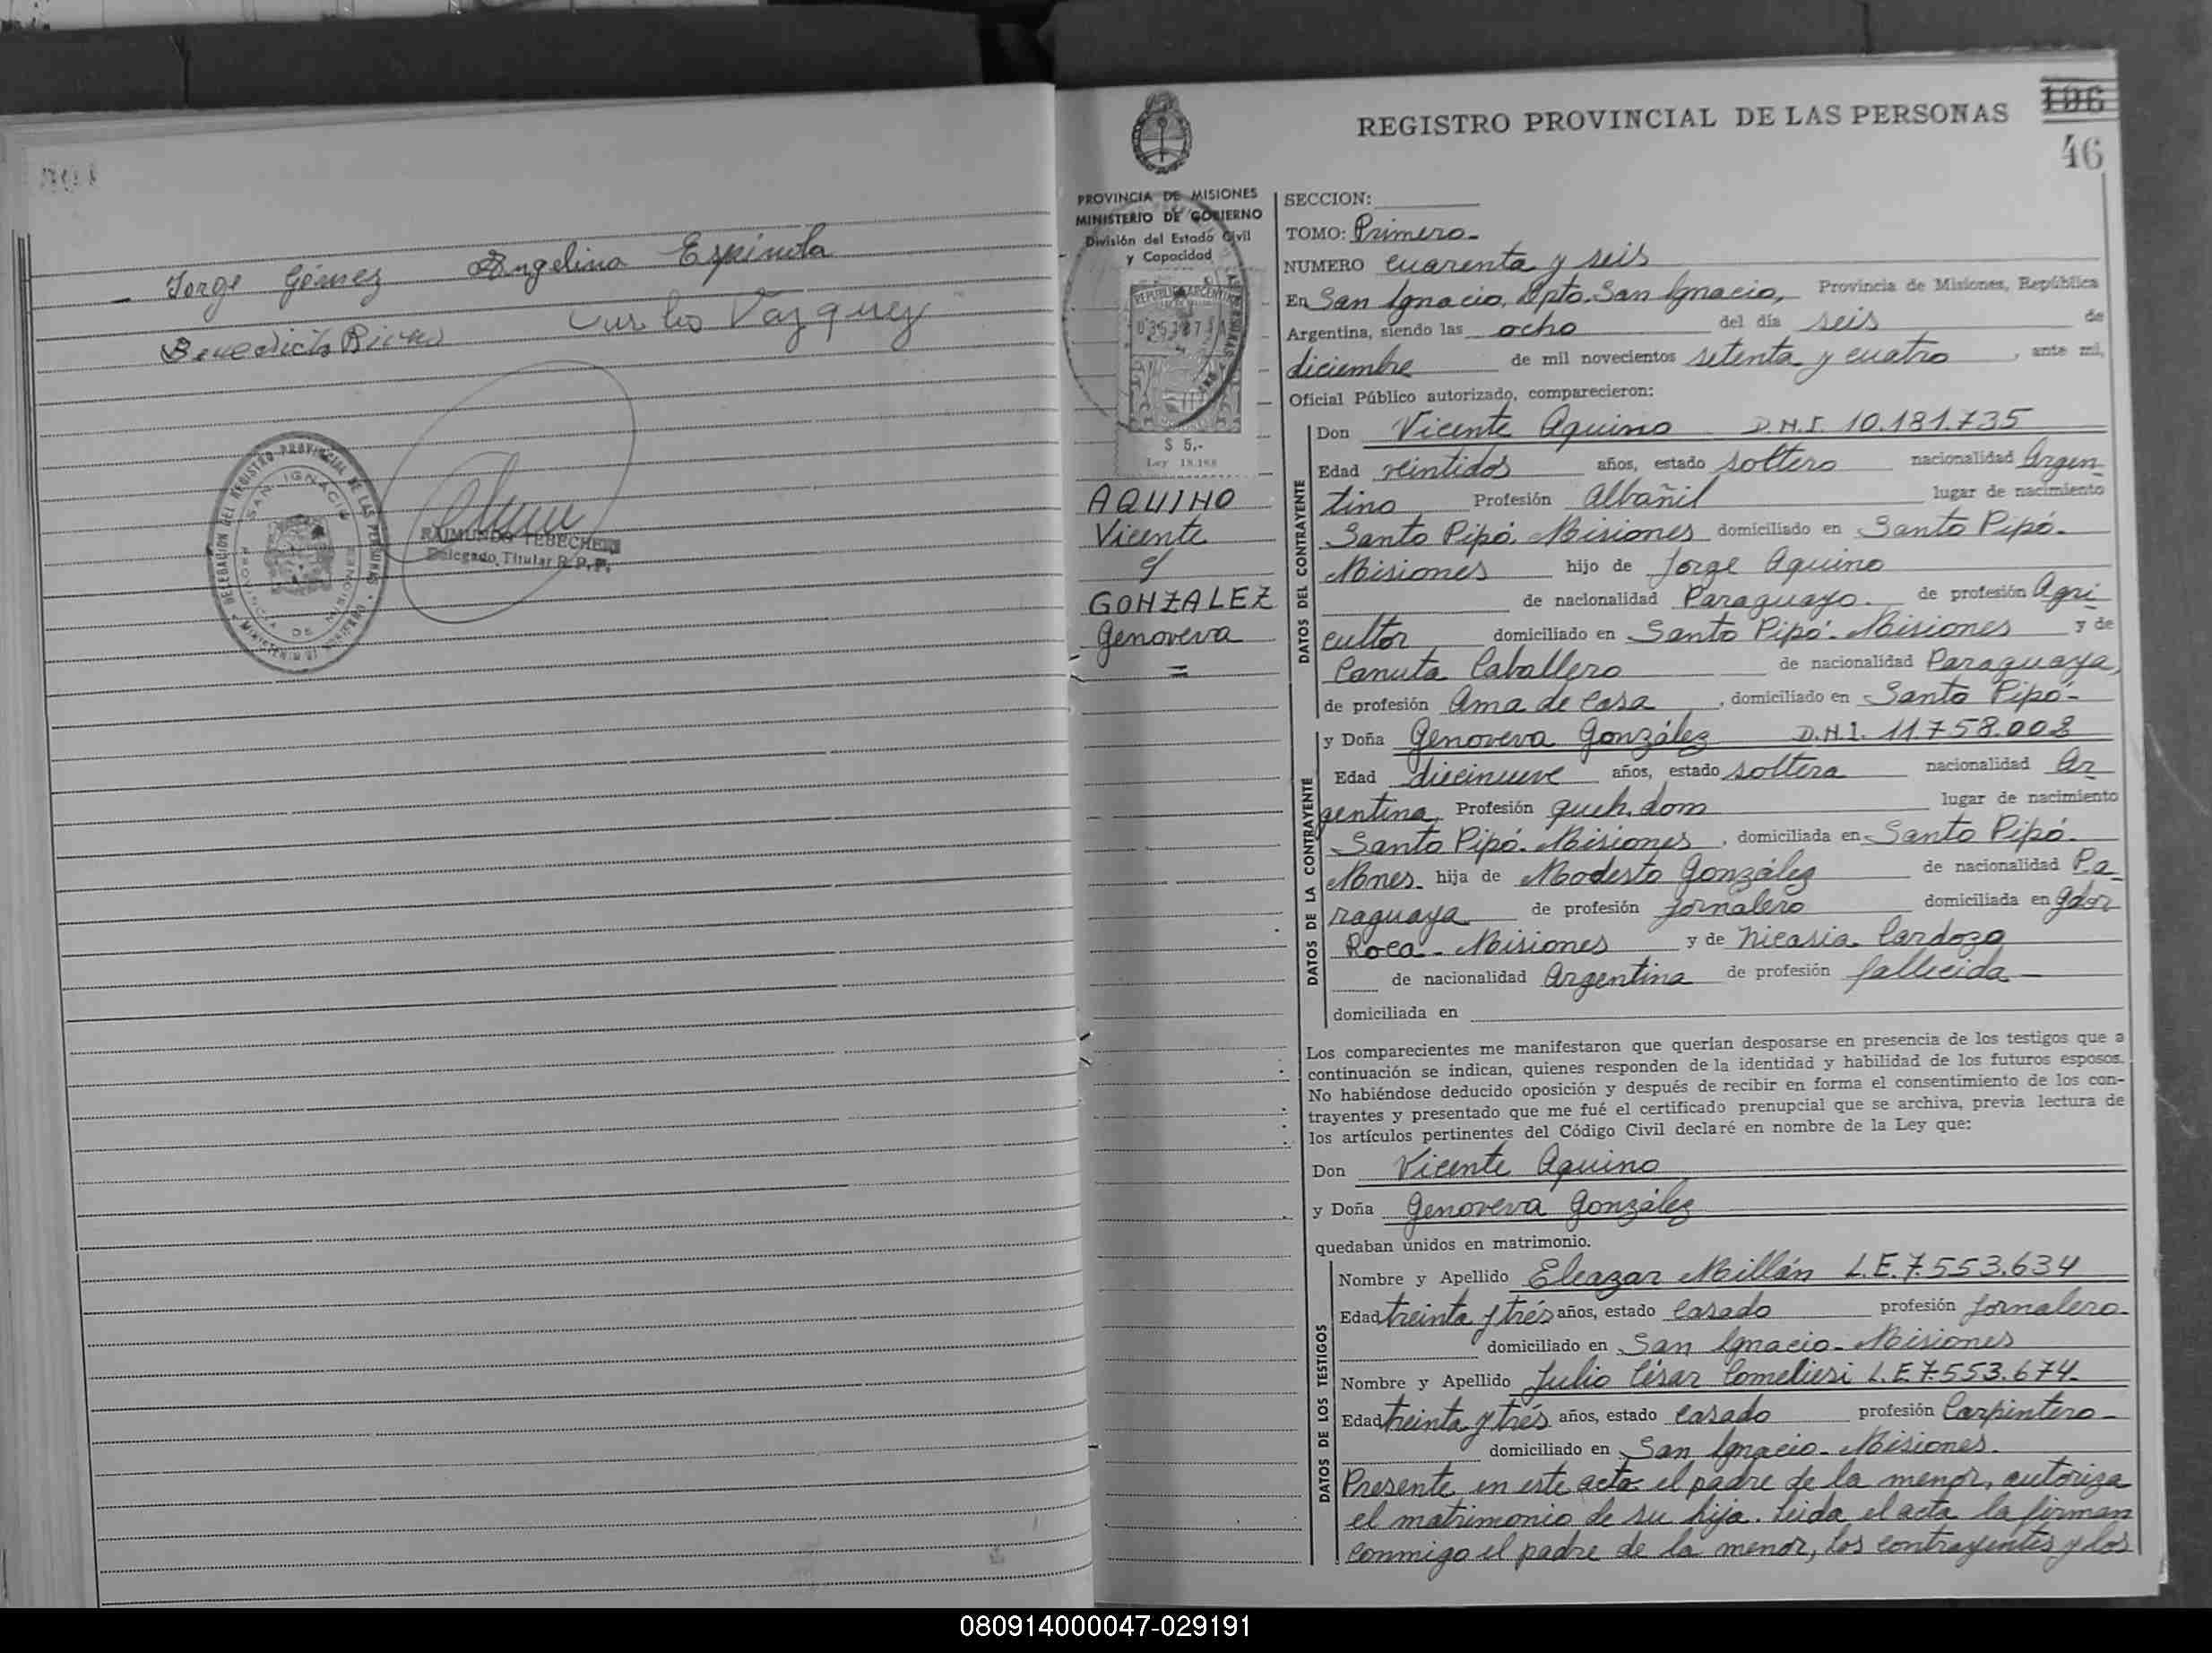 Jorge Gómez Angelina Espínola
Benedicto Vazquez
DELEGACION DEL REGISTRO PROVINCIAL DE LAS PERSONAS
SAN IGNACIO
PROVINCIA DE MISIONES
MINISTERIO DE GOBIERNO
RAIMUNDO TEBECHERI
Delegado Titular R. P. P.
REGISTRO PROVINCIAL DE LAS PERSONAS
106
46
PROVINCIA DE MISIONES
MINISTERIO DE GOBIERNO
División del Estado Civil
y Capacidad
REPUBLICA ARGENTINA
$ 5,-
Ley 18.188
AQUINO
Vicente
y
GONZALEZ
Genoveva
=
SECCION:
TOMO: Primero-
NUMERO cuarenta y seis
En San Ignacio, Dpto. San Ignacio, Provincia de Misiones, República
Argentina, siendo las ocho del día seis de
diciembre de mil novecientos setenta y cuatro, ante mí,
Oficial Público autorizado, comparecieron:
DATOS DEL CONTRAYENTE
Don Vicente Aquino D.N.I. 10.181.735
Edad veintidos años, estado soltero nacionalidad Argen
tino Profesión Albañil lugar de nacimiento
Santo Pipó. Misiones domiciliado en Santo Pipó-
Misiones hijo de Jorge Aquino
de nacionalidad Paraguayo. de profesión Agri
cultor domiciliado en Santo Pipó- Misiones y de
Canuta Caballero de nacionalidad Paraguaya,
de profesión Ama de Casa, domiciliado en Santo Pipó-
DATOS DE LA CONTRAYENTE
y Doña Genoveva González D.N.I. 11.758.008
Edad diecinueve años, estado soltera nacionalidad Ar
gentina, Profesión queh. dom lugar de nacimiento
Santo Pipó. Misiones, domiciliada en Santo Pipó-
Mnes. hija de Modesto González de nacionalidad Pa-
raguaya de profesión jornalero domiciliada en Gdor
Roca - Misiones y de Nicasia Cardozo
de nacionalidad Argentina de profesión fallecida-
domiciliada en
Los comparecientes me manifestaron que querían desposarse en presencia de los testigos que a
continuación se indican, quienes responden de la identidad y habilidad de los futuros esposos.
No habiéndose deducido oposición y después de recibir en forma el consentimiento de los con-
trayentes y presentado que me fué el certificado prenupcial que se archiva, previa lectura de
los artículos pertinentes del Código Civil declaré en nombre de la Ley que:
Don Vicente Aquino
y Doña Genoveva González
quedaban unidos en matrimonio.
DATOS DE LOS TESTIGOS
Nombre y Apellido Eleazar Millán L.E. 7.553.634
Edad treinta y trés años, estado casado profesión jornalero-
domiciliado en San Ignacio- Misiones
Nombre y Apellido Julio César Comeliesi L.E. 7.553.674-
Edad treinta y trés años, estado casado profesión Carpintero-
domiciliado en San Ignacio- Misiones.
Presente en este acto el padre de la menor, autoriza
el matrimonio de su hija. Leída el acta la firman
conmigo el padre de la menor, los contrayentes y los
080914000047-029191